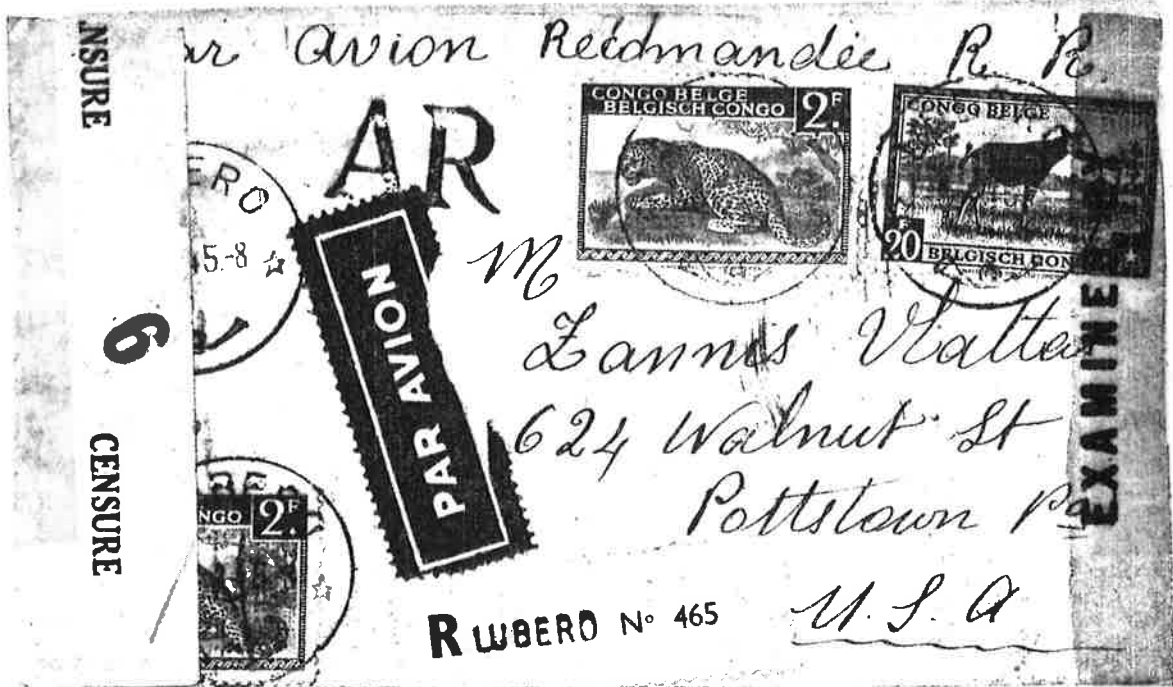 NSURE
6
CENSURE
ar avion Recomandée R. R.
AR
CONGO BELGE
BELGISCH CONGO
2F.
CONGO BELGE
20F
BELGISCH CON
ERO
5.-8
PAR AVION
M
Zannis Vlatta
624 Walnut St
Pottstown Pa
U. S. A
EXAMINE
NGO 2F.
R LUBERO No 465